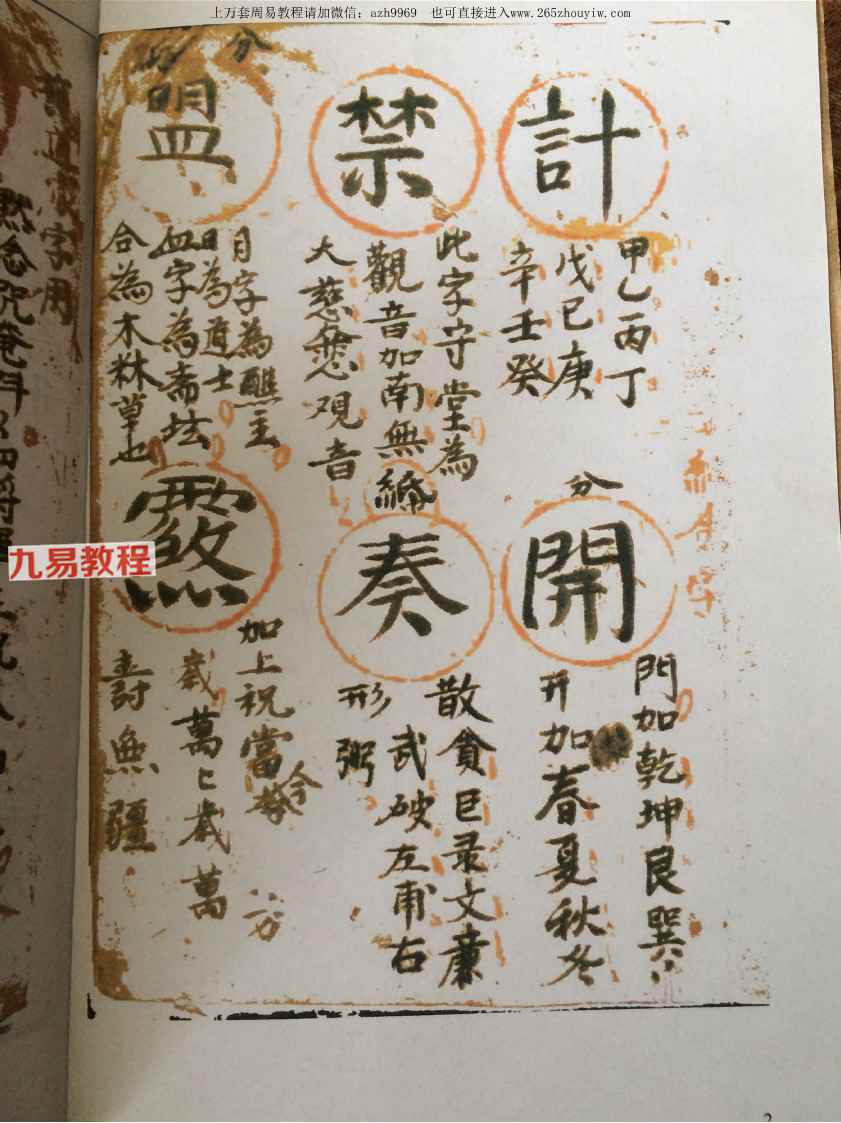 上万套周易教程请加微信：azh9969 也可直接进入www.265zhouyiw.com
計
甲乙丙丁
戊己庚
辛壬癸
禁
此字守堂為
觀音加南無
大慈悲观音
分
盟
月字為醮主
日為道士
血字為斋坛
合為木林草也
分
開
門加乾坤艮巽
开加春夏秋冬
締
奏
散貪巨录文廉
武破左甫右
形粥
加上祝當今
歲萬匕歲萬
壽無疆
九易教程
字用
默念咒奄
2